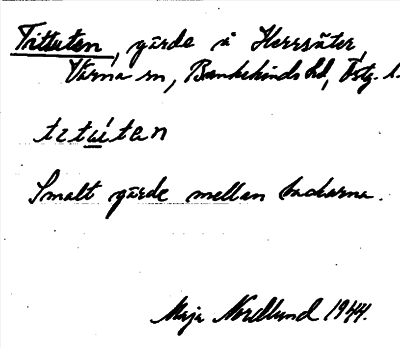 Tittuten, gärde å Herrsäter,
Värna sn, Bankekinds hd, Östg. l.
titú̲tan
Smalt gärde mellan backarna.
Maja Nordlund 1944.